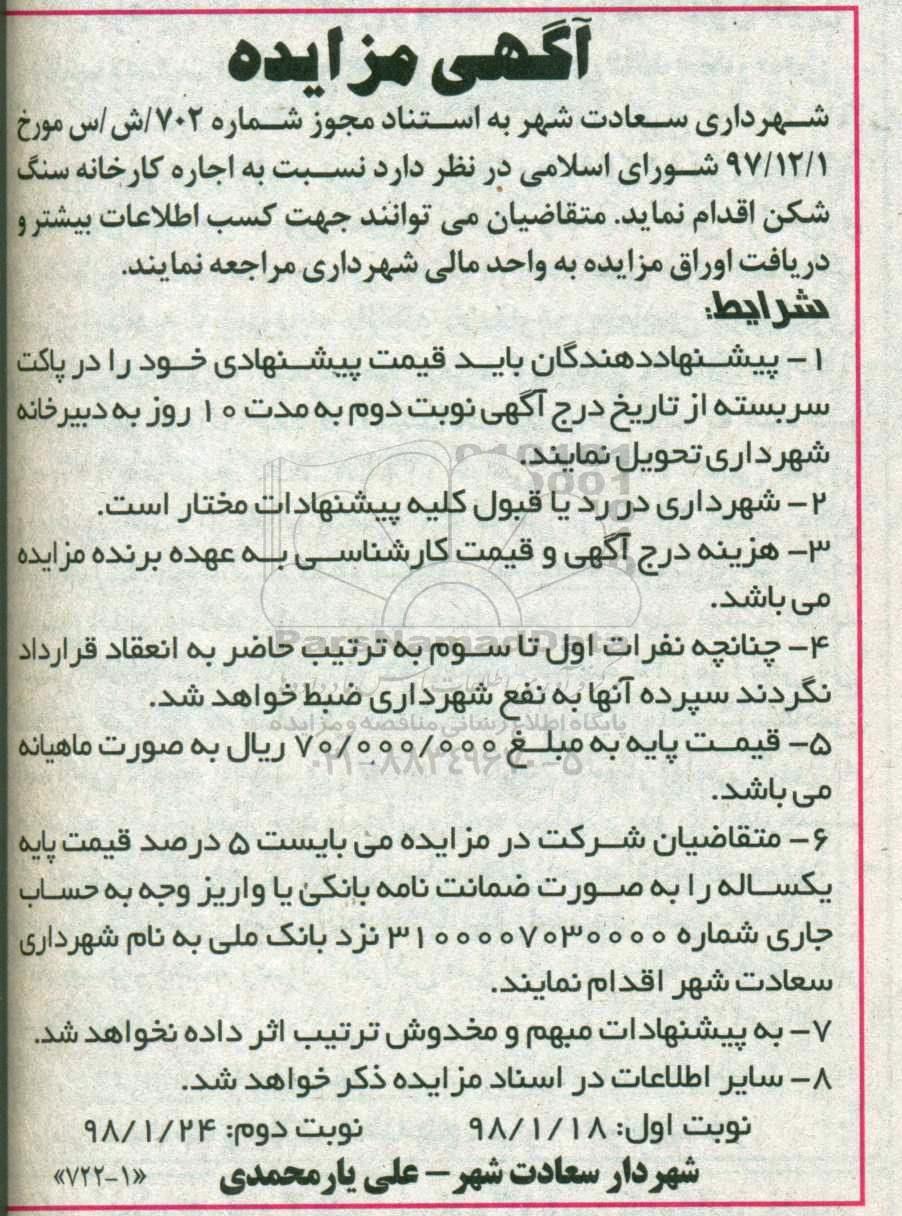 آگهی مزایده
شهرداری سعادت شهر به استناد مجوز شماره ۷۰۲/ش/س مورخ
۹۷/۱۲/۱ شورای اسلامی در نظر دارد نسبت به اجاره کارخانه سنگ
شکن اقدام نماید. متقاضیان می توانند جهت کسب اطلاعات بیشتر و
دریافت اوراق مزایده به واحد مالی شهرداری مراجعه نمایند.
شرایط:
۱- پیشنهاددهندگان باید قیمت پیشنهادی خود را در پاکت
سربسته از تاریخ درج آگهی نوبت دوم به مدت ۱۰ روز به دبیرخانه
شهرداری تحویل نمایند.
۲- شهرداری در رد یا قبول کلیه پیشنهادات مختار است.
۳- هزینه درج آگهی و قیمت کارشناسی به عهده برنده مزایده
می باشد.
ParsNamadData
۴- چنانچه نفرات اول تا سوم به ترتیب حاضر به انعقاد قرارداد
نگردند سپرده آنها به نفع شهرداری ضبط خواهد شد.
پایگاه اطلاع رسانی مناقصه و مزایده
۵- قیمت پایه به مبلغ ۷۰/۰۰۰/۰۰۰ ریال به صورت ماهیانه
۰۲۱-۸۸۳۴۹۶۷۰-۵
می باشد.
۶- متقاضیان شرکت در مزایده می بایست ۵ درصد قیمت پایه
یکساله را به صورت ضمانت نامه بانکی یا واریز وجه به حساب
جاری شماره ۳۱۰۰۰۰۷۰۳۰۰۰۰ نزد بانک ملی به نام شهرداری
سعادت شهر اقدام نمایند.
۷- به پیشنهادات مبهم و مخدوش ترتیب اثر داده نخواهد شد.
۸- سایر اطلاعات در اسناد مزایده ذکر خواهد شد.
نوبت اول: ۹۸/۱/۱۸ نوبت دوم: ۹۸/۱/۲۴
شهردار سعادت شهر – علی یارمحمدی «۱-۷۲۲»